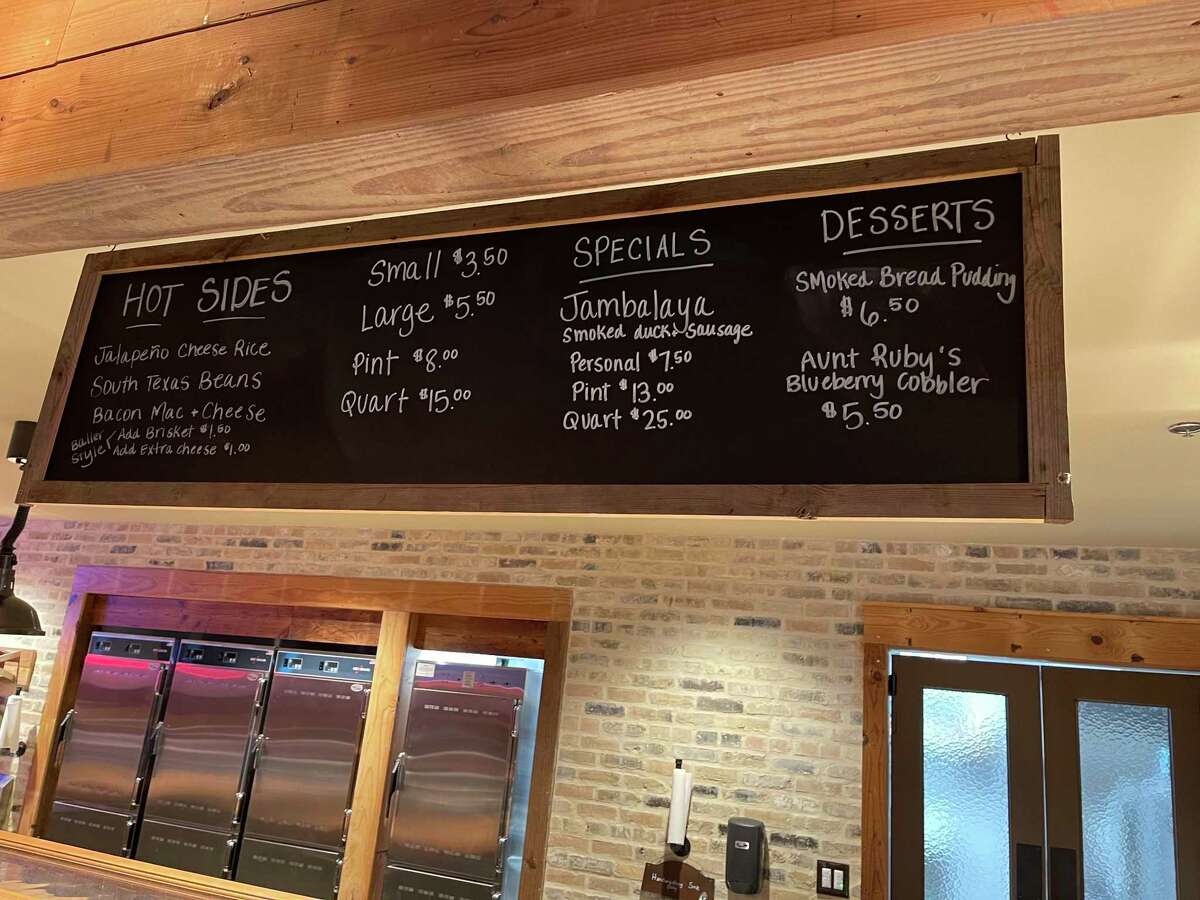 HOT SIDES
Jalapeño Cheese Rice
South Texas Beans
Bacon Mac + Cheese
Baller Style
Add Brisket $1.50
Add Extra cheese $1.00
Small $3.50
Large $5.50
Pint $8.00
Quart $15.00
SPECIALS
Jambalaya
Smoked duck & Sausage
Personal $7.50
Pint $13.00
Quart $25.00
DESSERTS
Smoked Bread Pudding
$6.50
Aunt Ruby's
Blueberry Cobbler
$5.50
Handwashing Sink